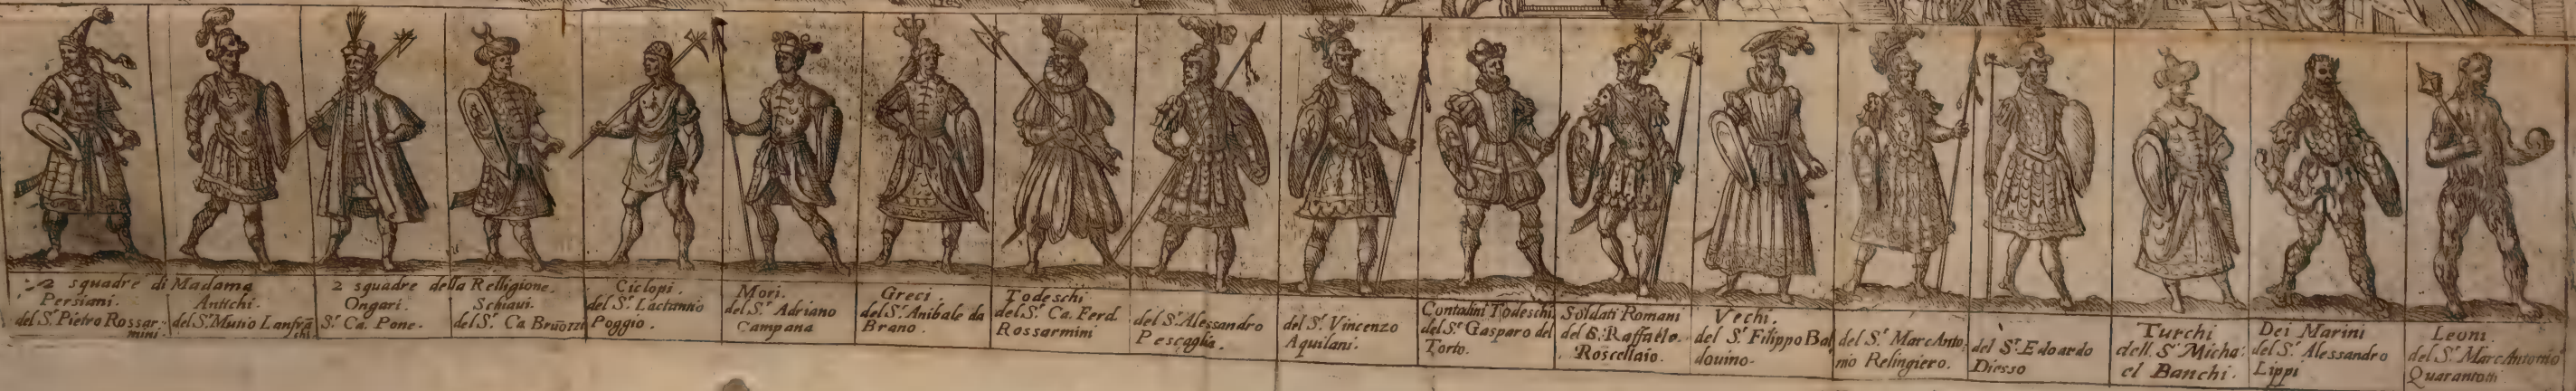 2 squadre di Madama
Persiani.
del S.r Pietro Rossar-
mini.
Antichi.
del S.r Mutio Lanfrã
chi
2 squadre della Relligione.
Ongari.
S.r Ca. Pone.
Schiaui.
del S.r Ca Bruozzi
Ciclopi.
del S.r Lactannio
Poggio.
Mori.
del S.r Adriano
Campana
Greci.
del S.r Anibale da
Brano.
Todeschi
del S.r Ca. Ferd.
Rossarmini
del S.r Alessandro
Pescaglia.
del S.r Vincenzo
Aquilani.
Contadini Todeschi
del S.r Gasparo del
Torto.
Soldati Romani
del S. Raffaelo.
Roscellaio.
Vechi.
del S.r Filippo Bal
douino.
del S.r Marc Anto
nio Relingiero.
del S.r Edoardo
Diesso
Turchi
dell S.r Micha
el Banchi.
Dei Marini
del S.r Alessandro
Lippi
Leoni.
del S.r Marc Antonio
Quarantotti